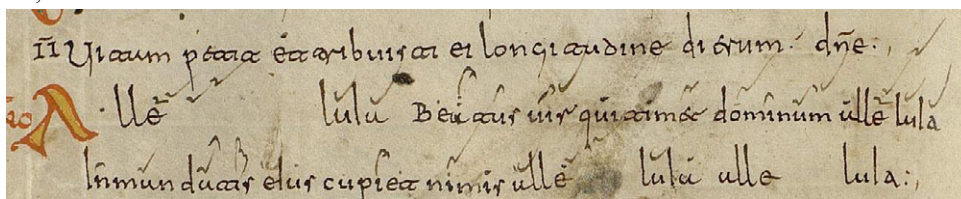 II Uitam petiit et tribuisti ei longitudine dierum. dne:,
Alle luia Beatus uir qui timet dominum alle luia
In mandatis eius cupiet nimis alle luia alle luia:,